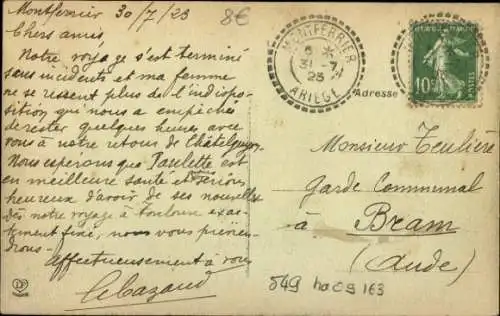 Montferrier 30/7/23
8€
Chers amis
Notre voyage s'est terminé
sans incidents et ma femme
ne se ressent plus de l'indispo-
sition qui nous a empêchés
de rester quelques heures avec
vous à notre retour de Châtelguyon.
Nous espérons que Paulette est
en meilleure santé et serions
heureux d'avoir de ses nouvelles
dès notre voyage à Toulouse exac-
tement fixé, nous vous prévien-
drons.
Affectueusement à vous
MONTFERRIER
31 -7
23
ARIEGE
10
POSTES
Adresse
Monsieur Teulière
Garde Communal
à Bram
(Aude)
549
163